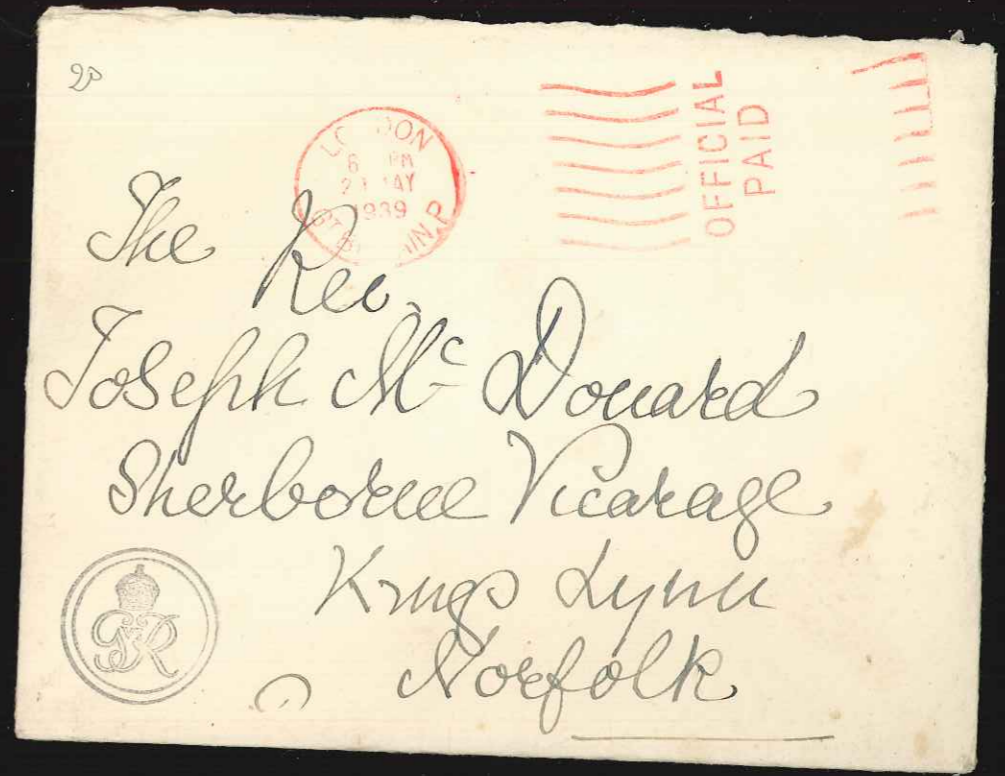 LONDON
6 PM
MAY
1939
OFFICIAL
PAID
The Rev.
Joseph Mc Donard
Sherborne Vicarage
Kings Lynn
Norfolk
GR